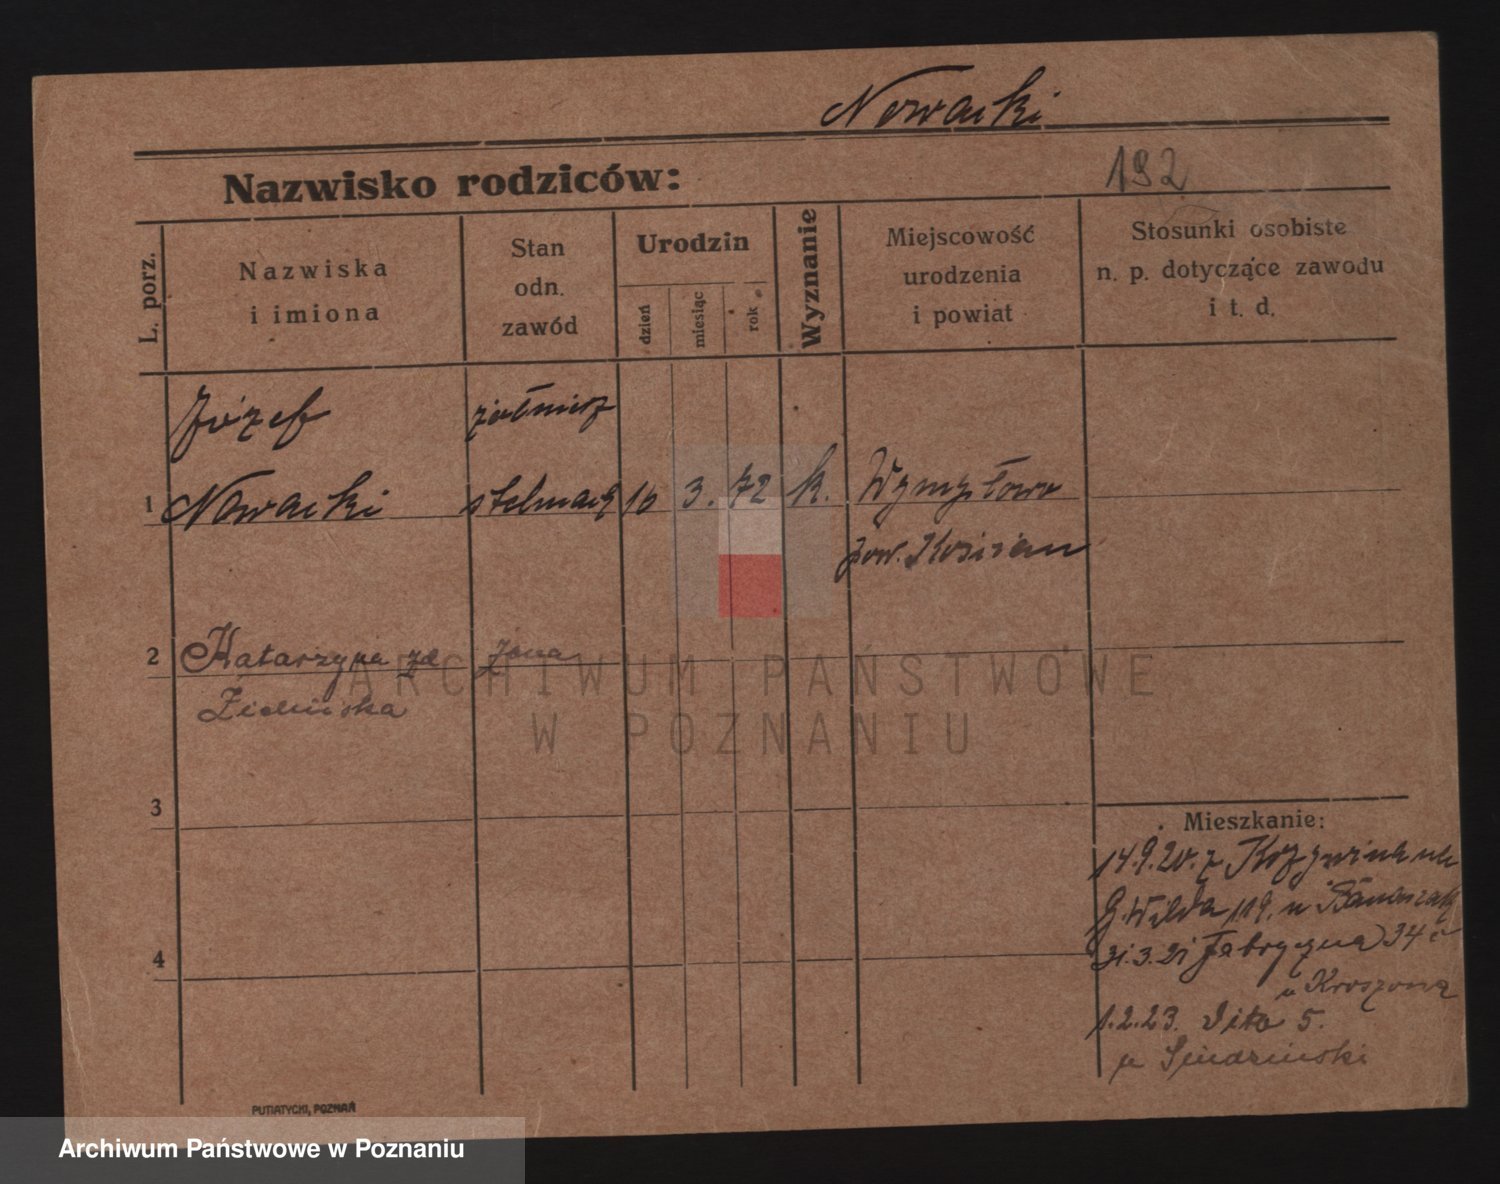 Nowacki
Nazwisko rodziców:
192
L. porz.
Nazwiska
i imiona
Stan
odn.
zawód
Urodzin
dzień
miesiąc
rok
Wyznanie
Miejscowość
urodzenia
i powiat
Stosunki osobiste
n. p. dotyczące zawodu
i t. d.
Józef
żołnierz
1 Nowacki stelmach 10 3. 72 k. Wymysłowo
pow. Kościan
2 Katarzyna zd żona
Zielińska
3
4
Mieszkanie:
14.9.20. z Krzywina na
G. Wilda 119. u Banaszak
31.3.21 Fabryczna 34
u
1.2.23. dito 5.
u
PUTIATYCKI, POZNAŃ
ARCHIWUM PAŃSTWOWE
W POZNANIU
Archiwum Państwowe w Poznaniu